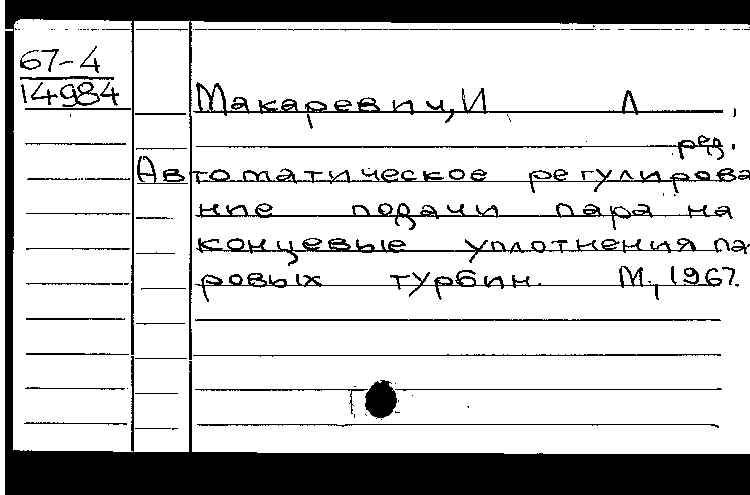 67-4
14984
Макаревич, И Л
ред.
Автоматическое регулирова
ние подачи пара на
концевые уплотнения па
ровых турбин. М., 1967.